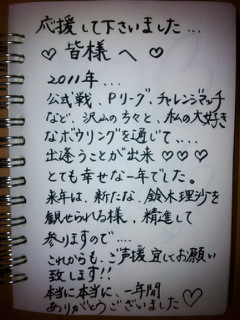 応援して下さいました…
♡ 皆様へ ♡
2011年…
公式戦、Pリーグ、チャレンジマッチ
など、沢山の方々と、私の大好き
なボウリングを通じて…、
出逢うことが出来♡♡♡
とても幸せな一年でした。
来年は、新たな、鈴木理沙を
観せられる様、精進して
参りますので…、
これからも、ご声援宜しくお願い
致します!!
本当に本当に、一年間
ありがとうございました♡